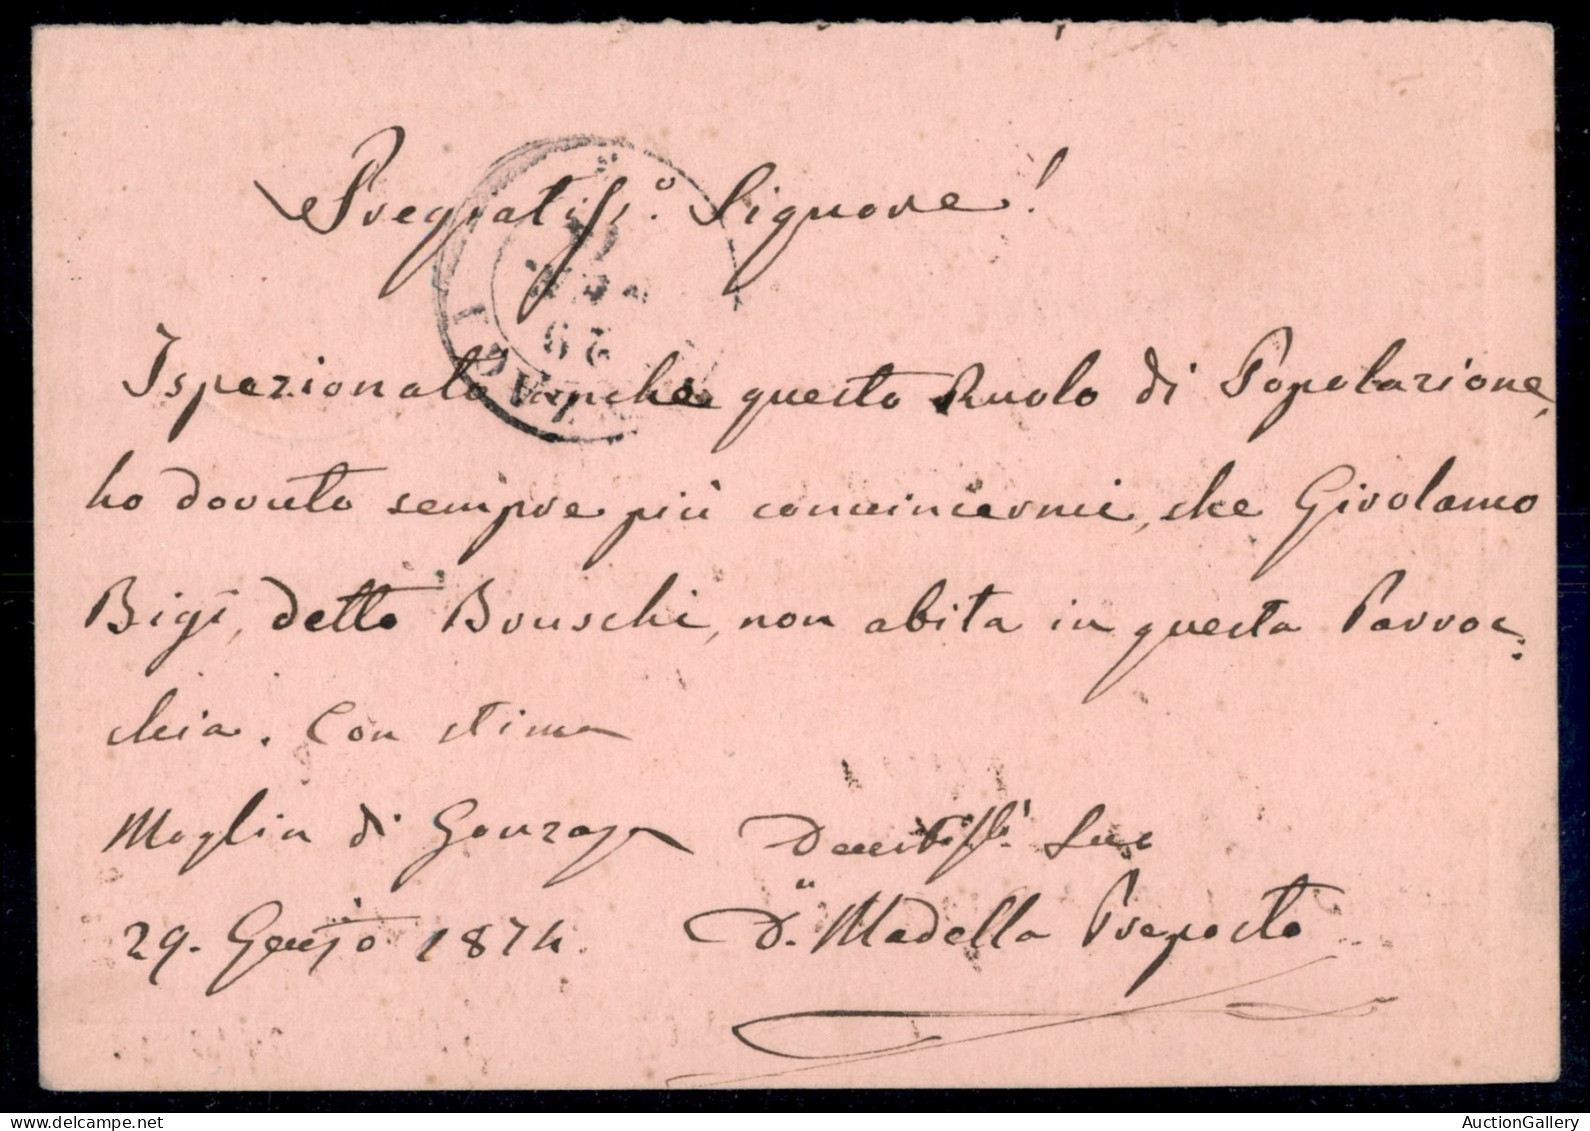 Pregiatiss.º Signore!
Ispezionato anche questo Ruolo di Popolazione,
ho dovuto sempre più convincermi, che Girolamo
Bigi, detto Bruschi, non abita in questa Parroc=
chia. Con stima
Moglia di Gonzaga
Devotiss.º Suo
29. Genjo 1874.
D.n Madella Preposto
29
AuctionGallery